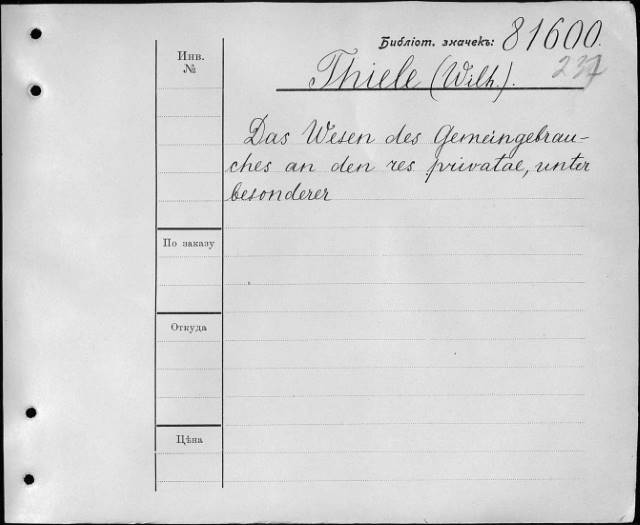 Библіот. значекъ: 81600.
237
Инв.
№
Thiele (Wilh.).
Das Wesen des Gemeingebrau-
ches an den res privatae, unter
besonderer
По заказу
Откуда
Цѣна